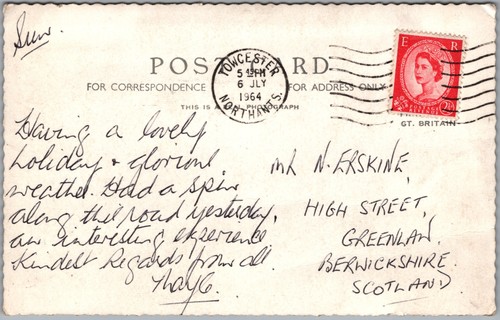 Sun.
POST CARD
FOR CORRESPONDENCE
FOR ADDRESS ONLY
THIS IS A REAL PHOTOGRAPH
TOWCESTER
5 PM
6 JLY
1964
NORTHANTS.
E R
2½
GT. BRITAIN
Having a lovely
holiday & glorious
weather. Had a spin
along this road yesterday,
an interesting experience
Kindest Regards from all.
MR N. ERSKINE,
HIGH STREET,
GREENLAW.
BERWICKSHIRE.
SCOTLAND